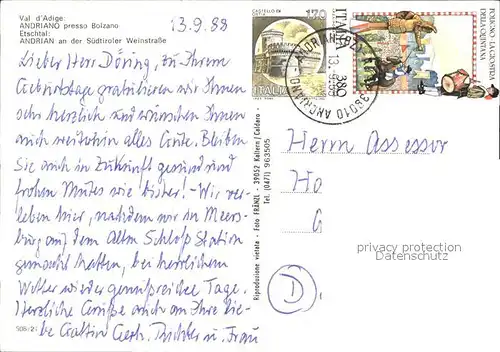 Val d'Adige:
ANDRIANO presso Bolzano
Etschtal:
ANDRIAN an der Südtiroler Weinstraße
13.9.88
Lieber Herr Döring, zu Ihrem
Geburtstage gratulieren wir Ihnen
sehr herzlich und wünschen Ihnen
auch weiterhin alles Gute. Bleiben
Sie auch in Zukunft gesund und
frohen Mutes wie bisher! - Wir ver-
leben hier, nachdem wir in Meers-
burg auf dem Alten Schloß Station
gemacht hatten, bei herrlichem
Wetter wieder genußreiche Tage.
Herzliche Grüße auch an Ihre lie-
be Gattin Gerh. Richter u. Frau
508/2
Riproduzione vietata - Foto FRÄNZL - 39052 Kaltern/Caldaro -
Tel. (0471) 963505
CASTELLO DI
170
ITALIA
ITALIA
380
FOLIGNO: LA GIOSTRA
DELLA QUINTANA
39010 ANDRIANO
Herrn Assessor
Ho
G
D
privacy protection
Datenschutz